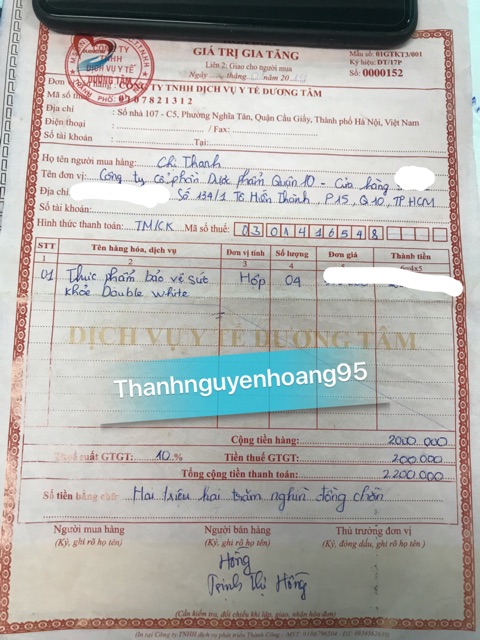 GIÁ TRỊ GIA TĂNG
Liên 2: Giao cho người mua
Ngày tháng
Mẫu số: 01GTKT3/001
Ký hiệu: DT/17P
Số: 0000152
CÔNG TY
TNHH
DỊCH VỤ Y TẾ
DƯƠNG TÂM
Đơn CÔNG TY TNHH DỊCH VỤ Y TẾ DƯƠNG TÂM
Mã số 0107821312
Địa chỉ : Số nhà 107 - C5, Phường Nghĩa Tân, Quận Cầu Giấy, Thành phố Hà Nội, Việt Nam
Điện thoại : / Fax:
Số tài khoản : Tại:
Họ tên người mua hàng: Chị Thanh
Tên đơn vị: Công ty Cổ phần Dược phẩm Quận 10 - Cửa hàng
Địa chỉ Số 134/1 Tô Hiến Thành, P15, Q10, TP HCM
Số tài khoản:
Hình thức thanh toán: TM/CK Mã số thuế: 0301416548
STT Tên hàng hóa, dịch vụ Đơn vị tính Số lượng Đơn giá Thành tiền
1 2 3 4
01 Thực phẩm bảo vệ sức Hộp 04
khỏe Double White
DỊCH VỤ Y TẾ DƯƠNG TÂM
Thanhnguyenhoang95
Cộng tiền hàng: 2000.000
Thuế suất GTGT: 10 % Tiền thuế GTGT: 200.000
Tổng cộng tiền thanh toán: 2.200.000
Số tiền bằng chữ: Hai triệu hai trăm nghìn đồng chẵn
Người mua hàng Người bán hàng Thủ trưởng đơn vị
(Ký, ghi rõ họ tên) (Ký, ghi rõ họ tên) (Ký, đóng dấu, ghi rõ họ tên)
Hồng
Trịnh Thị Hồng
(Cần kiểm tra, đối chiếu khi lập, giao, nhận hóa đơn)